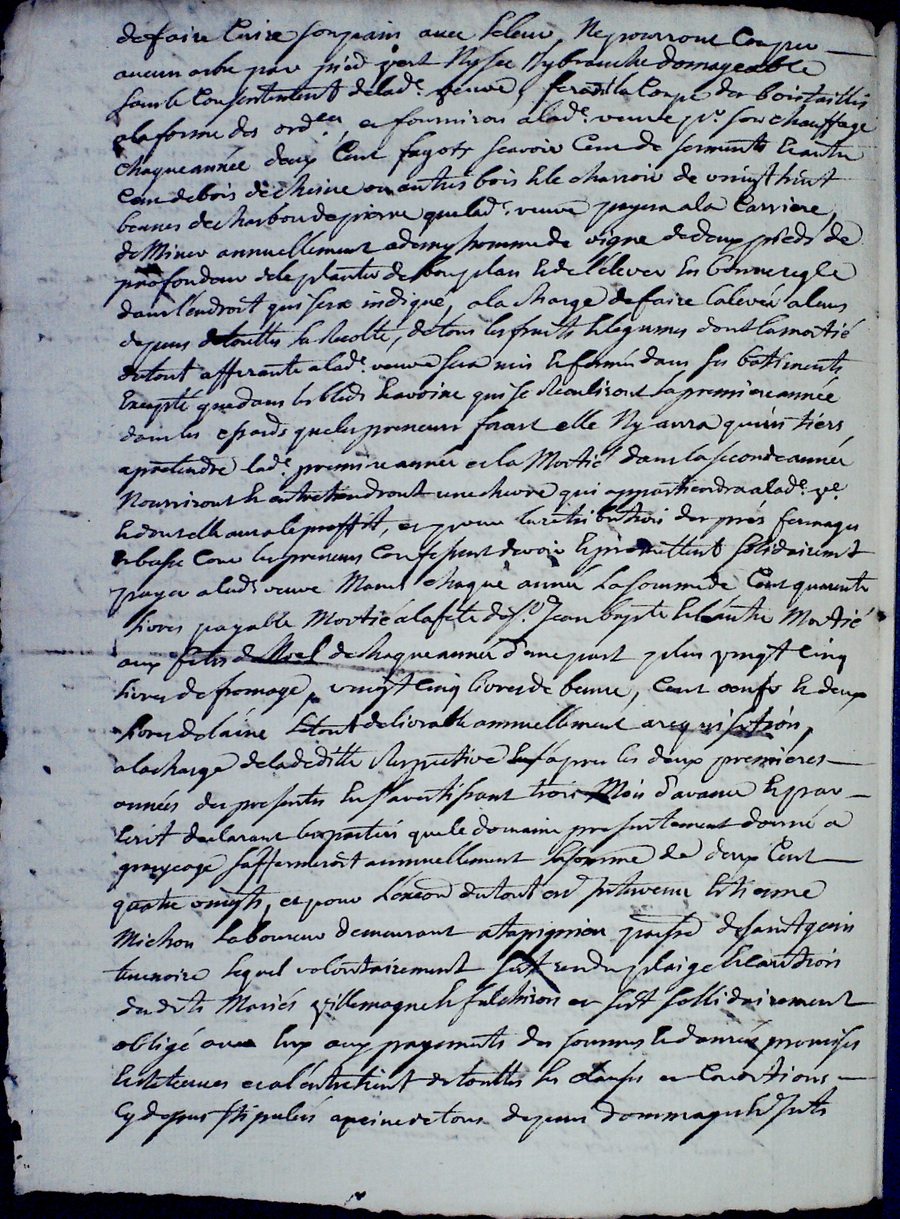 de faire Cuire son pain avec le leur, Ne pourront Couper
aucun arbre par pied vert Ny sec Ny branche domageable
sans le Consentement de lad.e veuve, feront la Coupe des bois taillis
a la forme des ord.ces, et fourniron a lad.e veuve pr. son chauffage
chaque année deux Cent fagots scavoir Cent de serment et autre
Cent de bois de chesne ou autres bois et le charroir de vingt huit
bennes de charbon de pierre que lad.e veuve payera a la Carriere,
de Miner annuellement a demy homme de vigne de deux pieds de
profondeur de le planter de bon plan et de l'élever En bonne regle
dans l'endroit qui sera indiqué, a la charge de faire la levée a leurs
depens de touttes la Recolte, de tous les fruits et legumes dont la moitié
du tout afferante a lad.e veuve sera mis et fermé dans ses battiments
Excepté que dans les bleds et avoine qui se Recüeliront la premiere année
dans les que les preneurs feront elle Ny aura qu'un tiers
a pretendre lad.e premiere année et la Moitié dans la seconde année
Nourriront et entretiendront une chevre qui appartiendra a lad.e v.e
et dont elle aura le proffit, et pour la retribution des près fermages
et basse Cour les preneurs Confessent devoir et promettent solidairement
payer a lad.e veuve Manel chaque année la somme de Cent quarente
Livres payable Moitié a la fete de S.t Jean bapte et l'autre Moitié
aux fetes de Noel de chaque année d'une part plus vingt Cinq
Livres de fromage, vingt Cinq livres de beurre, Cent oeufs et deux
Livres de laine Le tout delivrable annuellement a requisition,
a la charge de la deditte Respective apres les deux premieres
années des presentes En s'avertissant trois Mois d'avance et par
Ecrit declarant les parties que le domaine presentement donné a
grangeage s'affermeroit annuellement la somme de deux Cent
quatre vingts, et pour l'exeon du tout est intervenu Etienne
Michon Laboureur demeurant a tapignieu parsse de saint genis
terrenoire lequel volontairement s'est rendu plaige et caution
desdits Mariés Villemagne et falchiron et s'est sollidairement
obligé avec Eux aux payements des sommes et denrées promises
et detenues et a l'entretient de touttes les Clauses et Conditions
Cy dessus stipulées a peine de tous depens dommages et Jnts